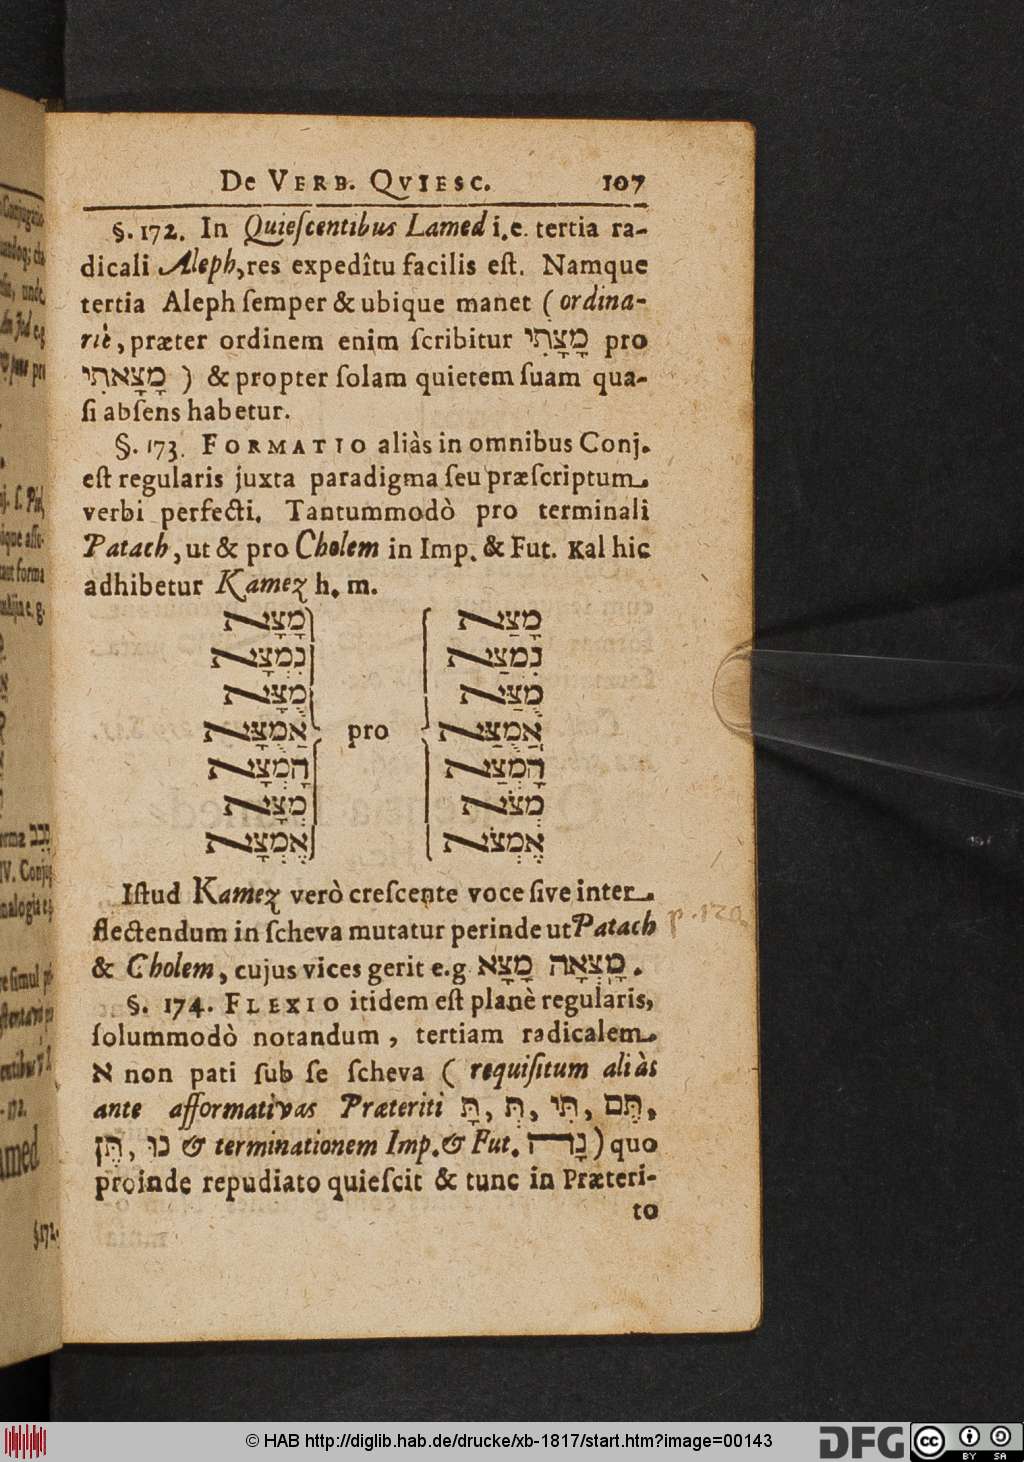 De VERB. QVIESC. 107
§. 172. In Quieſcentibus Lamed i.e. tertia ra-
dicali Aleph, res expedîtu facilis eſt. Namque
tertia Aleph ſemper & ubique manet ( ordina-
riè, præter ordinem enim ſcribitur מָצָתִי pro
מָצָאתִי ) & propter ſolam quietem ſuam qua-
ſi abſens habetur.
§. 173. FORMATIO aliàs in omnibus Conj.
eſt regularis juxta paradigma ſeu præſcriptum
verbi perfecti. Tantummodò pro terminali
Patach, ut & pro Cholem in Imp. & Fut. Kal hic
adhibetur Kamez h. m.
מָצָא מָצַא
נִמְצָא נִמְצַא
מֻצָּא מֻצַּא
אֲמֻצָּא pro אֲמֻצַּא
הָמְצָא הָמְצַא
מְצָא מְצֹא
אֶמְצָא אֶמְצֹא
Iſtud Kamez verò creſcente voce ſive inter
flectendum in ſcheva mutatur perinde ut Patach
& Cholem, cujus vices gerit e.g מָצָא מָצְאָה .
§. 174. FLEXIO itidem eſt planè regularis,
ſolummodò notandum, tertiam radicalem
א non pati ſub ſe ſcheva ( requiſitum aliàs
ante afformativas Præteriti תָּ, תְּ, תִּי, תֶּם,
תֶּן, נוּ & terminationem Imp. & Fut. נָה ) quo
proinde repudiato quieſcit & tunc in Præteri-
to
p. 120.
§172.
© HAB http://diglib.hab.de/drucke/xb-1817/start.htm?image=00143
DFG
cc BY SA